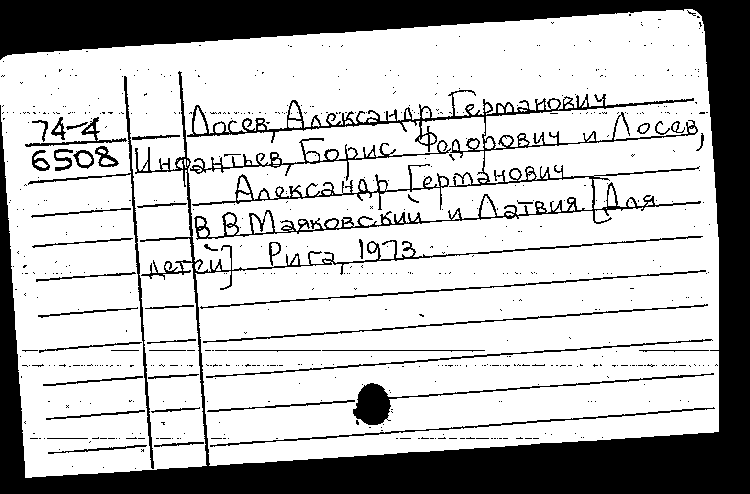 Лосев, Александр Германович
74-4
6508 Инфантьев, Борис Федорович и Лосев,
Александр Германович
В В Маяковский и Латвия. [Для
детей]. Рига, 1973.